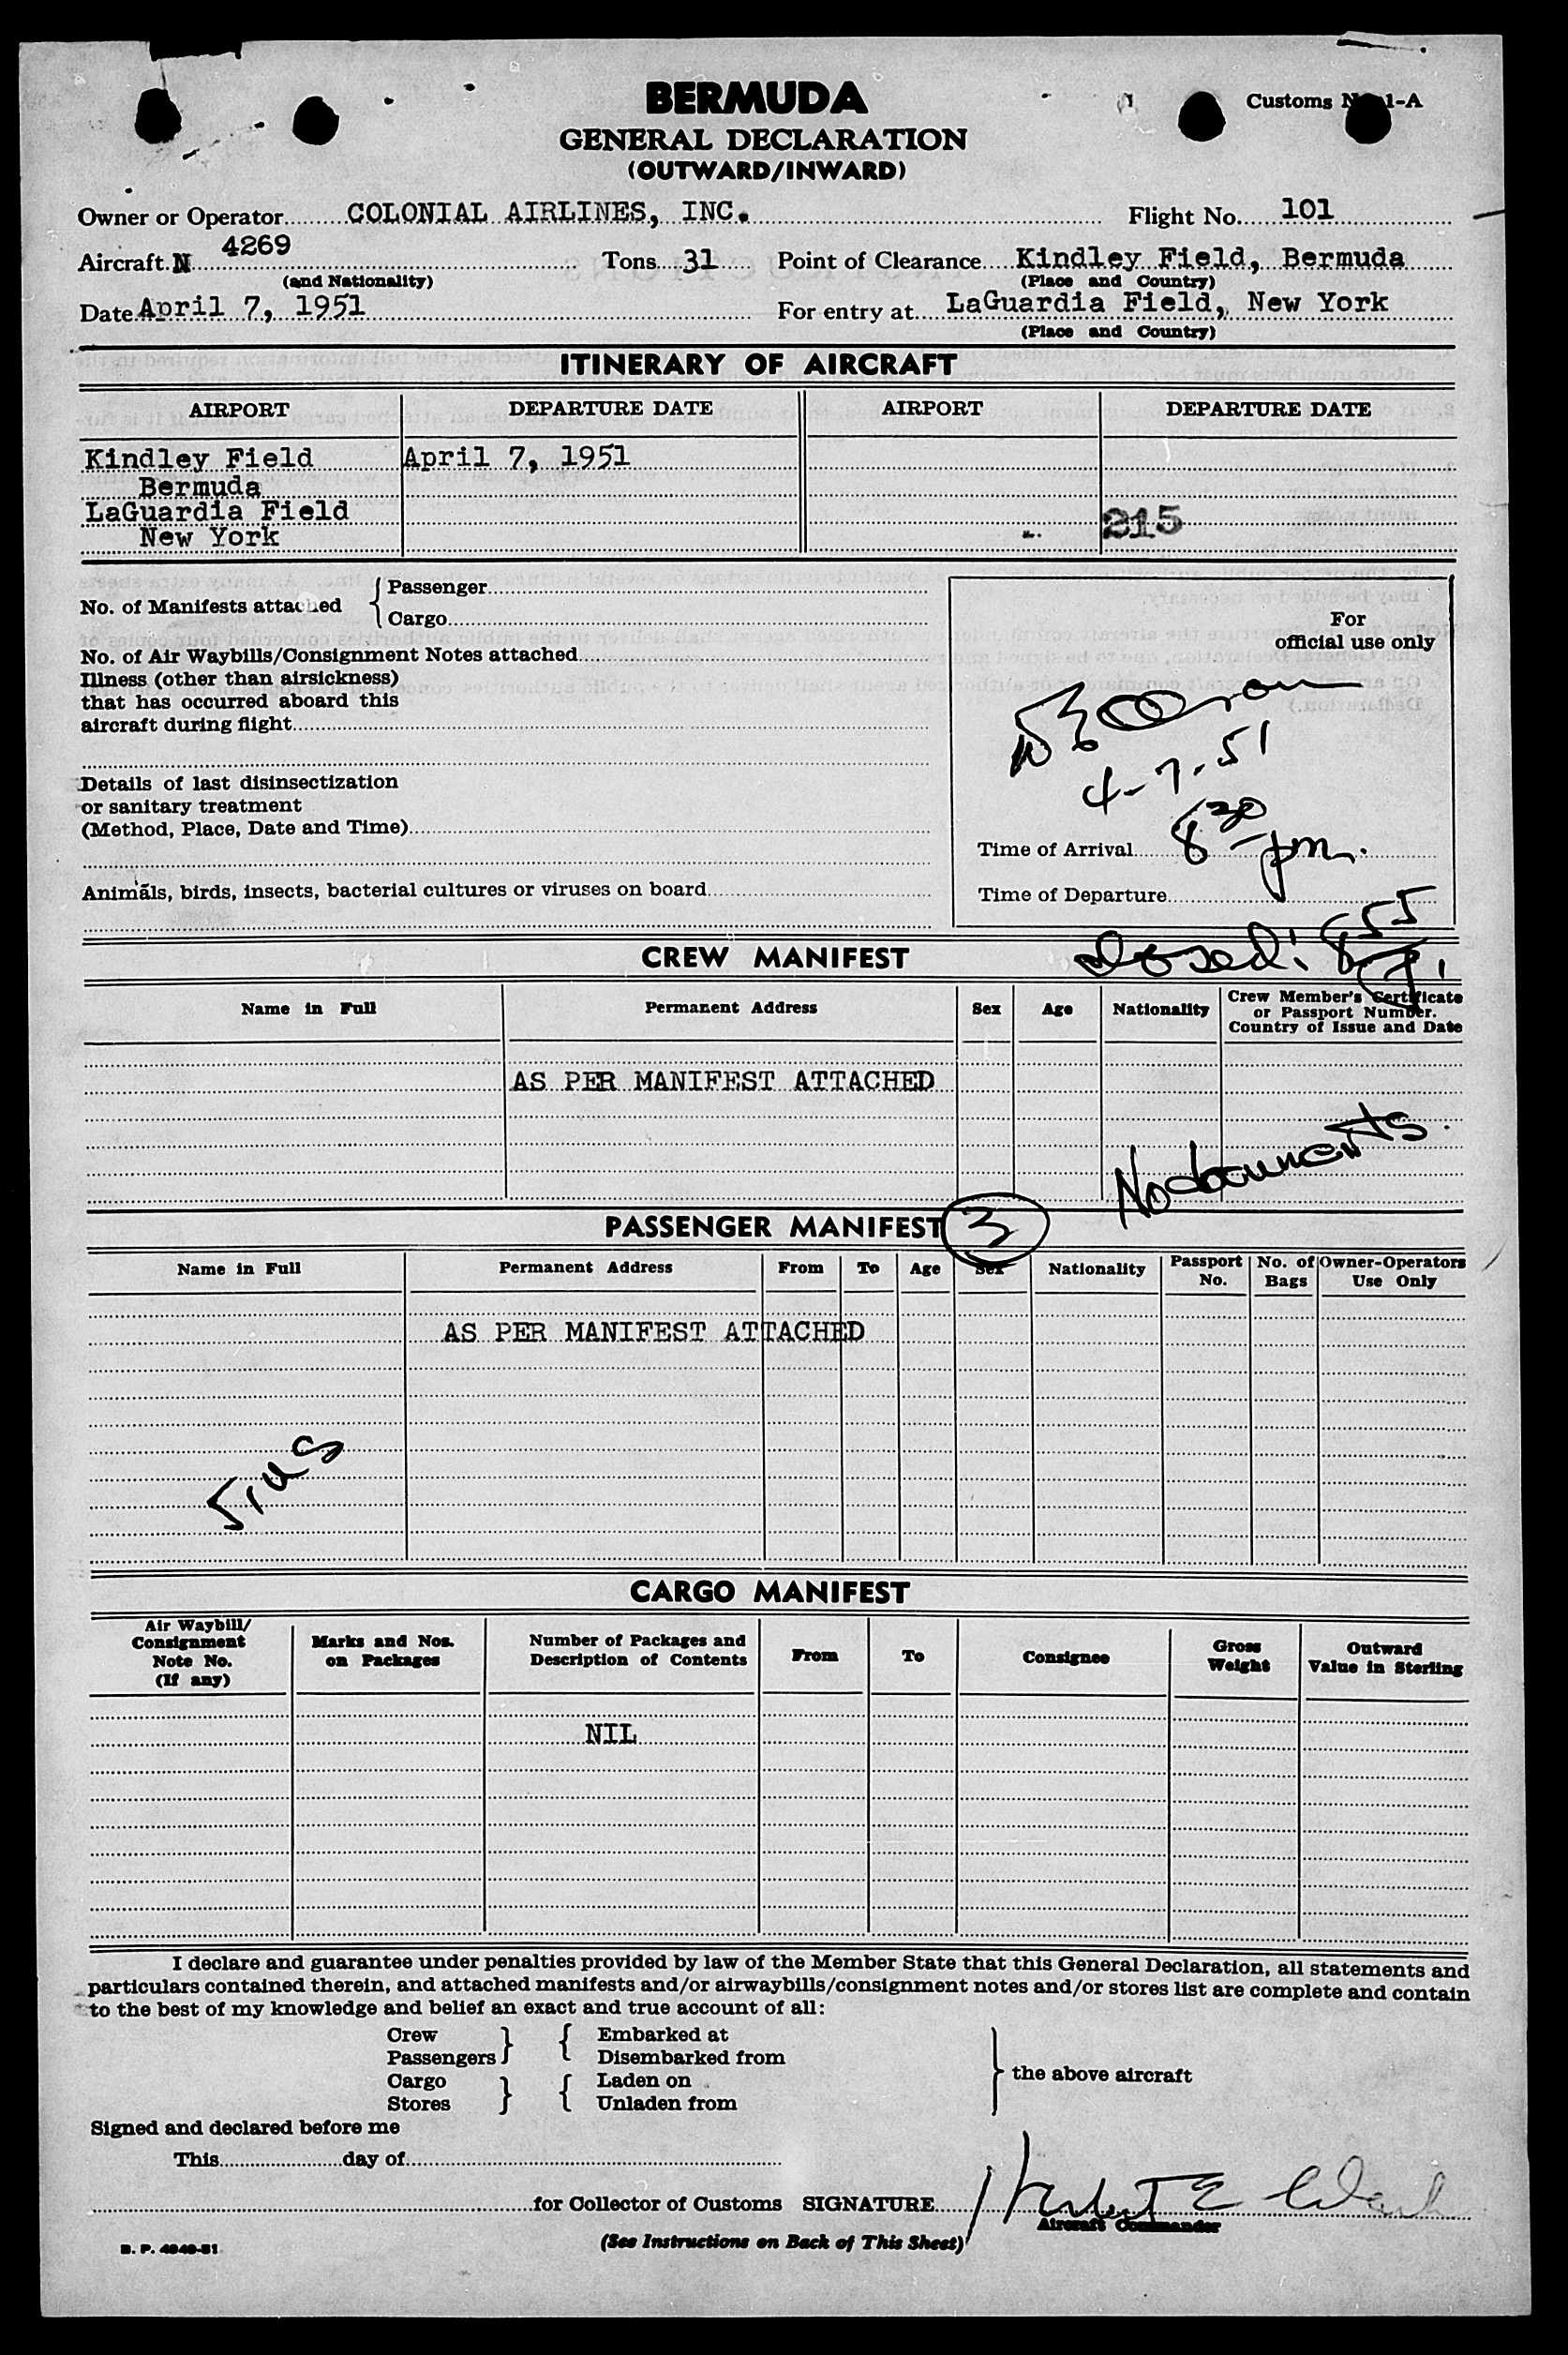 BERMUDA
Customs No. 1-A
GENERAL DECLARATION
(OUTWARD/INWARD)
Owner or Operator COLONIAL AIRLINES, INC. Flight No. 101
Aircraft N 4269 Tons 31 Point of Clearance Kindley Field, Bermuda
(and Nationality) (Place and Country)
Date April 7, 1951 For entry at LaGuardia Field, New York
(Place and Country)
ITINERARY OF AIRCRAFT
AIRPORT DEPARTURE DATE AIRPORT DEPARTURE DATE
Kindley Field April 7, 1951
Bermuda
LaGuardia Field
New York 215
No. of Manifests attached { Passenger
Cargo
No. of Air Waybills/Consignment Notes attached
Illness (other than airsickness)
that has occurred aboard this
aircraft during flight
Details of last disinsectization
or sanitary treatment
(Method, Place, Date and Time)
Animals, birds, insects, bacterial cultures or viruses on board
For
official use only
4-7-51
Time of Arrival 8 30 pm.
Time of Departure
Closed: 8 55
CREW MANIFEST
Name in Full Permanent Address Sex Age Nationality Crew Member's Certificate
or Passport Number.
Country of Issue and Date
AS PER MANIFEST ATTACHED
No documents.
PASSENGER MANIFEST 3
Name in Full Permanent Address From To Age Sex Nationality Passport No. No. of Bags Owner-Operators Use Only
AS PER MANIFEST ATTACHED
CARGO MANIFEST
Air Waybill/
Consignment
Note No.
(If any)
Marks and Nos.
on Packages
Number of Packages and
Description of Contents
From To Consignee
Gross
Weight
Outward
Value in Sterling
NIL
I declare and guarantee under penalties provided by law of the Member State that this General Declaration, all statements and
particulars contained therein, and attached manifests and/or airwaybills/consignment notes and/or stores list are complete and contain
to the best of my knowledge and belief an exact and true account of all:
Crew } { Embarked at
Passengers Disembarked from
Cargo } { Laden on
Stores Unladen from
} the above aircraft
Signed and declared before me
This day of
for Collector of Customs SIGNATURE
Aircraft Commander
(See Instructions on Back of This Sheet)